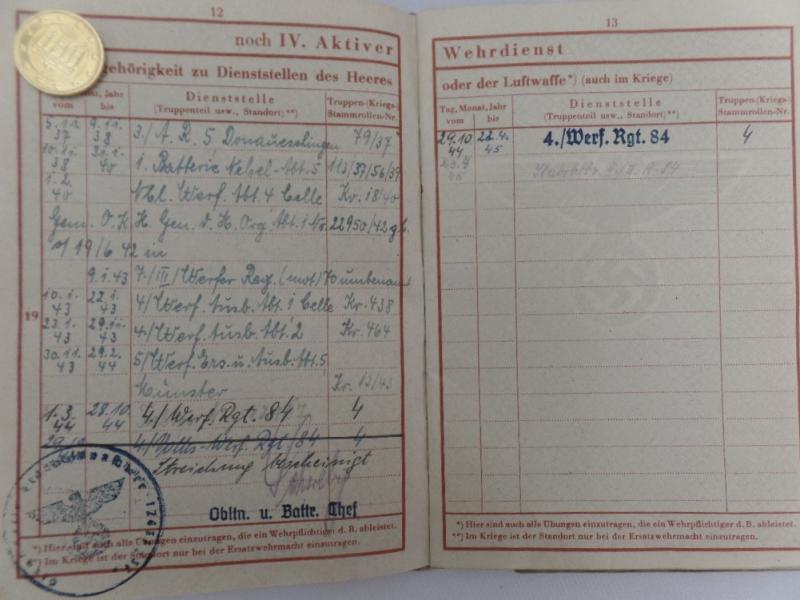 12
noch IV. Aktiver
gehörigkeit zu Dienststellen des Heeres
Jahr
vom bis
Dienststelle
(Truppenteil usw., Standort)**)
Truppen-(Kriegs-)
Stammrollen-Nr.
5.11. 37 9.11. 38 3./A. R. 5 Donaueschingen 79/37
10.11. 38 31.1. 40 1. Batterie Nebel-Abt. 5 113/37/56/39
1.2. 40 Nbl. Werf. Abt. 4 Celle Kr. 18/40
Gem. O. K. H. Gen. d. H. Org Abt. 1 Nr. 22950/42 g.
v/ 19/6 42 in
9.1.43 7./III/Werfer Reg. (mot) 70 umbenannt
19
10.1. 43 22.1. 43 4/Werf. Ausb. Abt. 1 Celle Kr. 438
23.1. 43 29.11. 43 4/Werf. Ausb. Abt. 2 Kr. 464
30.11. 43 29.2. 44 5/Werf. Ers. u. Ausb. Abt. 5
Münster Kr. 13/43
1.3. 44 28.10 44 4./Werf. Rgt. 84 4
29.10 4./Volks-Werf. Rgt. 84 4
Streichung bescheinigt
Obltn. u. Battr. Chef
*) Hier sind auch alle Übungen einzutragen, die ein Wehrpflichtiger d. B. ableistet.
**) Im Kriege ist der Standort nur bei der Ersatzwehrmacht einzutragen.
13
Wehrdienst
oder der Luftwaffe*) (auch im Kriege)
Tag, Monat, Jahr
vom bis
Dienststelle
(Truppenteil usw., Standort)**)
Truppen-(Kriegs-)
Stammrollen-Nr.
29.10 44 22.4. 45 4./Werf. Rgt. 84 4
23.4 45
*) Hier sind auch alle Übungen einzutragen, die ein Wehrpflichtiger d. B. ableistet.
**) Im Kriege ist der Standort nur bei der Ersatzwehrmacht einzutragen.